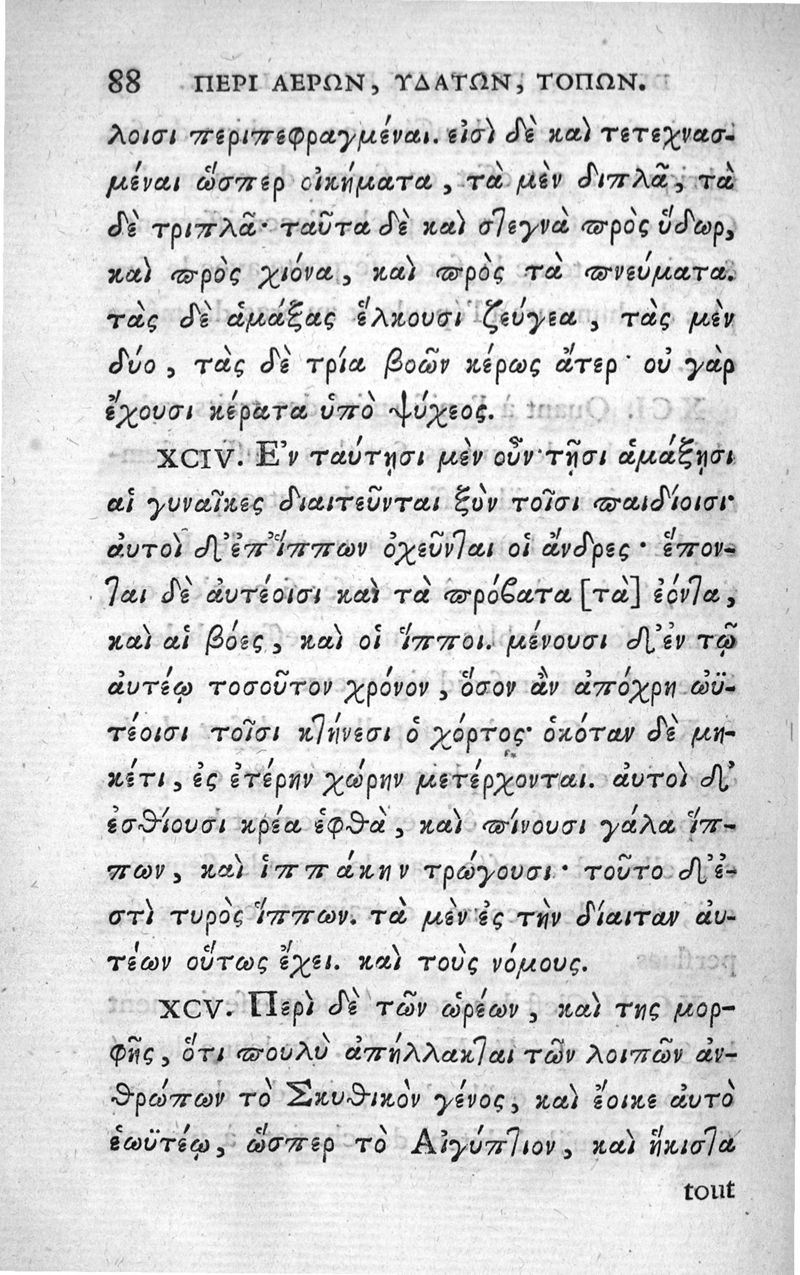 88 ΠΕΡΙ ΑΕΡΩΝ, ΥΔΑΤΩΝ, ΤΟΠΩΝ.
λοισι περιπεφραγμέναι. εἰσὶ δὲ καὶ τετεχνασ-
μέναι ὥσπερ οἰκήματα, τὰ μὲν διπλᾶ, τὰ
δὲ τριπλᾶ· ταῦτα δὲ καὶ στεγνὰ πρὸς ὕδωρ,
καὶ πρὸς χιόνα, καὶ πρὸς τὰ πνεύματα.
τὰς δὲ ἁμάξας ἕλκουσι ζεύγεα, τὰς μὲν
δύο, τὰς δὲ τρία βοῶν κέρως ἄτερ· οὐ γὰρ
ἔχουσι κέρατα ὑπὸ ψύχεος.
XCIV. Ἐν ταύτῃσι μὲν οὖν τῇσι ἁμάξῃσι
αἱ γυναῖκες διαιτεῦνται ξὺν τοῖσι παιδίοισι·
ἀυτοὶ δ' ἐπ' ἵππων ὀχεῦνται οἱ ἄνδρες· ἕπον-
ται δὲ ἀυτέοισι καὶ τὰ πρόβατα [τὰ] ἐόντα,
καὶ αἱ βόες, καὶ οἱ ἵπποι. μένουσι δ' ἐν τῷ
ἀυτέῳ τοσοῦτον χρόνον, ὅσον ἂν ἀπόχρη ὠϋ-
τέοισι τοῖσι κτήνεσι ὁ χόρτος· ὁκόταν δὲ μη-
κέτι, ἐς ἑτέρην χώρην μετέρχονται. ἀυτοὶ δ'
ἐσθίουσι κρέα ἑφθὰ, καὶ πίνουσι γάλα ἵπ-
πων, καὶ ἱππάκην τρώγουσι· τοῦτο δ' ἐ-
στὶ τυρὸς ἵππων. τὰ μὲν ἐς τὴν δίαιταν ἀυ-
τέων οὕτως ἔχει. καὶ τοὺς νόμους.
XCV. Περὶ δὲ τῶν ὡρέων, καὶ της μορ-
φῆς, ὅτι πουλὺ ἀπήλλακται τῶν λοιπῶν ἀν-
θρώπων τὸ Σκυθικὸν γένος, καὶ ἔοικε ἀυτὸ
ἑωϋτέῳ, ὥσπερ τὸ Αἰγύπτιον, καὶ ἥκιστα
tout